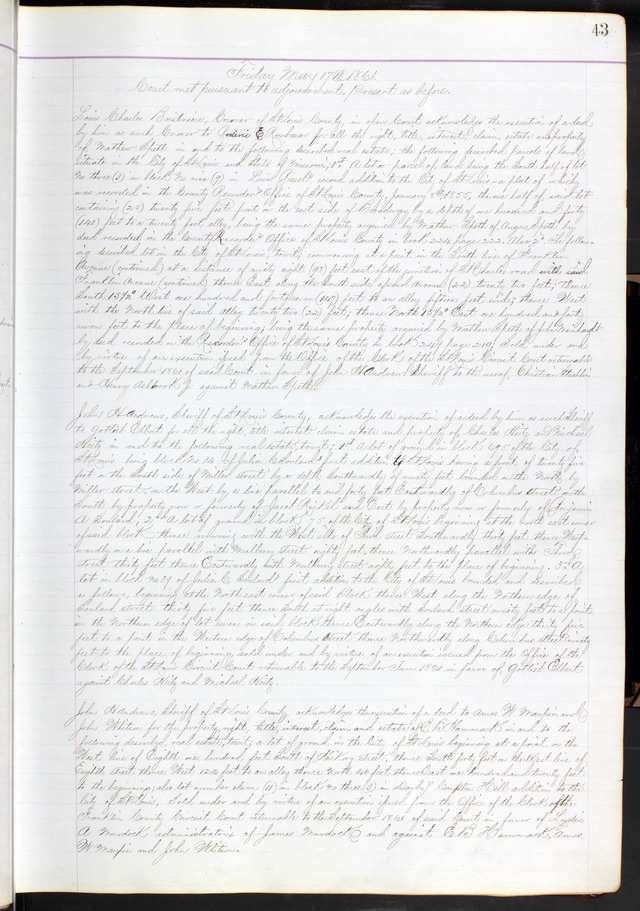 43
Friday May 17th 1861
Court met pursuant to adjournment, present as before.
Louis Charles Boislinière, Coroner of St Louis County, in open Court acknowledges the execution of a deed
by him as such Coroner to E for all the right, title, interest, claim, estate and property
of Matthew Spott in and to the following described real estate, the following described parcels of land
situate in the City of St Louis and State of Missouri, 1st A lot or parcel of land being the South half of lot
No three (3) in block No nine (9) in second addition to the City of St Louis a plat of which
was recorded in the County Recorders Office of St Louis County, January 1855, the one half of said lot
containing (25) twenty five feet front on the east side of Broadway by a depth of one hundred and forty
(140) feet to a twenty foot alley, being the same property acquired by Matthew Spott of Spott by
deed recorded in the County Recorders Office of St Louis County in book 224 page 222. Also 2d The follow-
ing described lot in the City of St Louis, County commencing at a point in the South line of Franklin
Avenue (continued) at a distance of ninety eight (98) feet east of the junction of St Charles road with said
Franklin Avenue (continued) thence East along the South side of said Avenue (22) twenty two feet, thence
South 13½° West one hundred and forty seven (147) feet to an alley fifteen feet wide; thence West
with the North line of said alley twenty two (22) feet, thence North 13½° East one hundred and forty
seven feet to the place of beginning, being the same property acquired by Matthew Spott of John
by deed recorded in the Recorders Office of St Louis County in book 249 page 210; Sold under and
by virtue of an execution issued from the Office of the Clerk of the St Louis Circuit Court returnable
to the September 1861 of said Court in favor of John H Andrews Sheriff to the use of, Christian
and Henry against Matthew Spott.
John H Andrews, Sheriff of St Louis County, acknowledges the execution of a deed by him as such Sheriff
to Gottlieb Elbert for all the right, title interest claim estate and property of Charles Heitz and Michael
Heitz in and to the following real estate, towit; 1st A lot of ground in block 69 of the City of
St Louis being block No 14 of Julia C Soulard's first addition to St Louis having a front of twenty five
feet on the South side of Miller street by a depth Southwardly of ninety feet bounded on the North by
Miller street, on the West by a line parallel to and forty feet Eastwardly of Columbus street, on the
South by property now or formerly of Jacob and East by property now or formerly of Benjamin
A Soulard; 2d A lot of ground in block 75 of the City of St Louis beginning at the north west corner
of said block thence running with the West side of Third street Southwardly thirty feet thence West-
wardly on a line parallel with Mulberry street eighty feet, thence Northwardly parallel with Third
street thirty feet thence Eastwardly with Mulberry street eighty feet to the place of beginning. 3rd A
lot in block no 39 of Julia C Soulards first addition to the City of St Louis bounded and described
as follows, beginning at the North east corner of said block thence West along the Northern edge of
Soulard street thirty five feet thence South at right angles with Soulard street ninety feet to a point
in the Northern edge of lot seven in said block thence Eastwardly along the Northern edge thirty five
feet to a point in the Western edge of Columbus street thence Northwardly along Columbus street ninety
feet to the place of beginning, sold under and by virtue of an execution issued from the Office of the
Clerk of the St Louis Circuit Court returnable to the September Term 1861 in favor of Gottlieb Elbert
against Charles Heitz and Michael Heitz.
John H Andrews, Sheriff of St Louis County, acknowledges the execution of a deed to Amos W Maupin and
John Whitson for the property, right, title, interest, claim and estate of E B Hammack in and to the
following described real estate, towit; a lot of ground in the City of St Louis beginning at a point on the
West line of Eighth one hundred feet South of Hickory street; thence South forty feet on the West line of
Eighth street thence West 120 feet to an alley thence North 40 feet thence East one hundred and twenty feet
to the beginning; also lot number eleven (11) in block no three (3) in Darby's Compton Hill addition to the
City of St Louis, Sold under and by virtue of an execution issued from the Office of the Clerk of the
Franklin County Circuit Court returnable to the September 1861 of said Court in favor of Lydia
A Murdock administratrix of James Murdock and against E B Hammack, Amos
W Maupin and John Whitson.